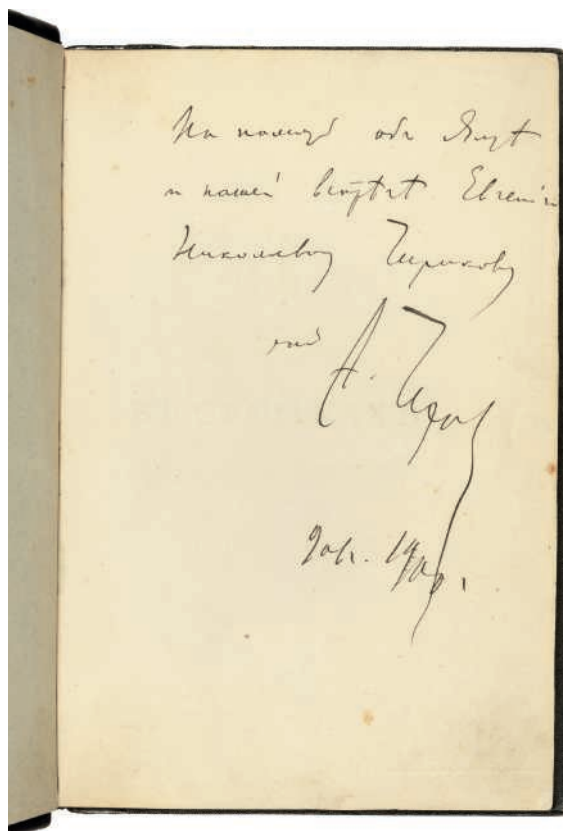 На память объ Ялтѣ
и нашей встрѣчѣ Евгенію
Николаевичу Чирикову
А. Чехов
1900 г.